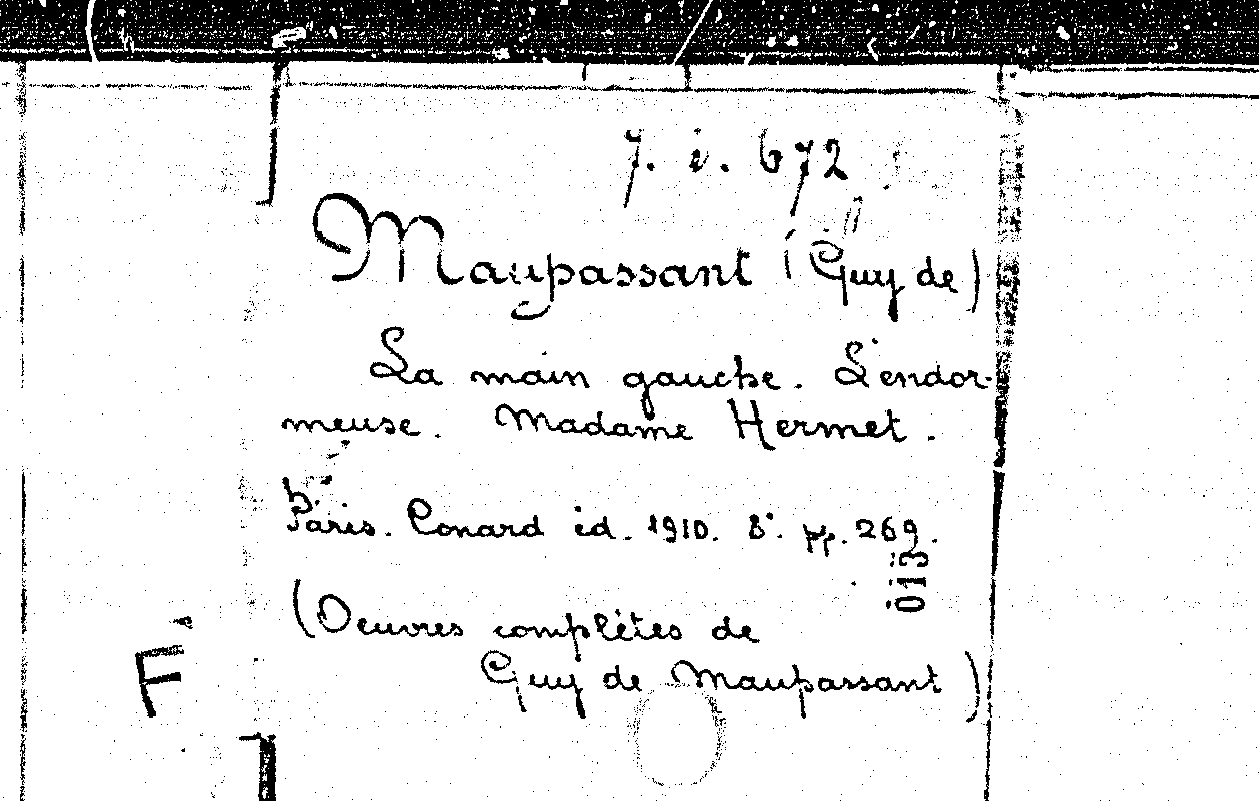 7. i. 672
Maupassant (Guy de)
La main gauche. L'endor-
meuse. Madame Hermet.
Paris. Conard éd. 1910. 8°. pp. 269.
013
(Oeuvres complètes de
Guy de Maupassant)
F